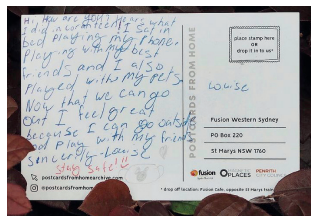 Hi, How are you? Hears what
I did in worn teen I sat in
bed playing my phone.
Playing with my best
friends and I also
Played with my pets.
Now that we can go
out I feel great
because I can go outside
and play with my friends
sincerely-Louise
Stay Safe!
postcardsfromhomearchive.com
@postcardsfromhome
POSTCARDS FROM HOME
place stamp here
OR
drop it in to us*
Louise
Fusion Western Sydney
PO Box 220
St Marys NSW 1760
fusion
PLACES
PENRITH
* drop location: Fusion Cafe, opposite St Marys train